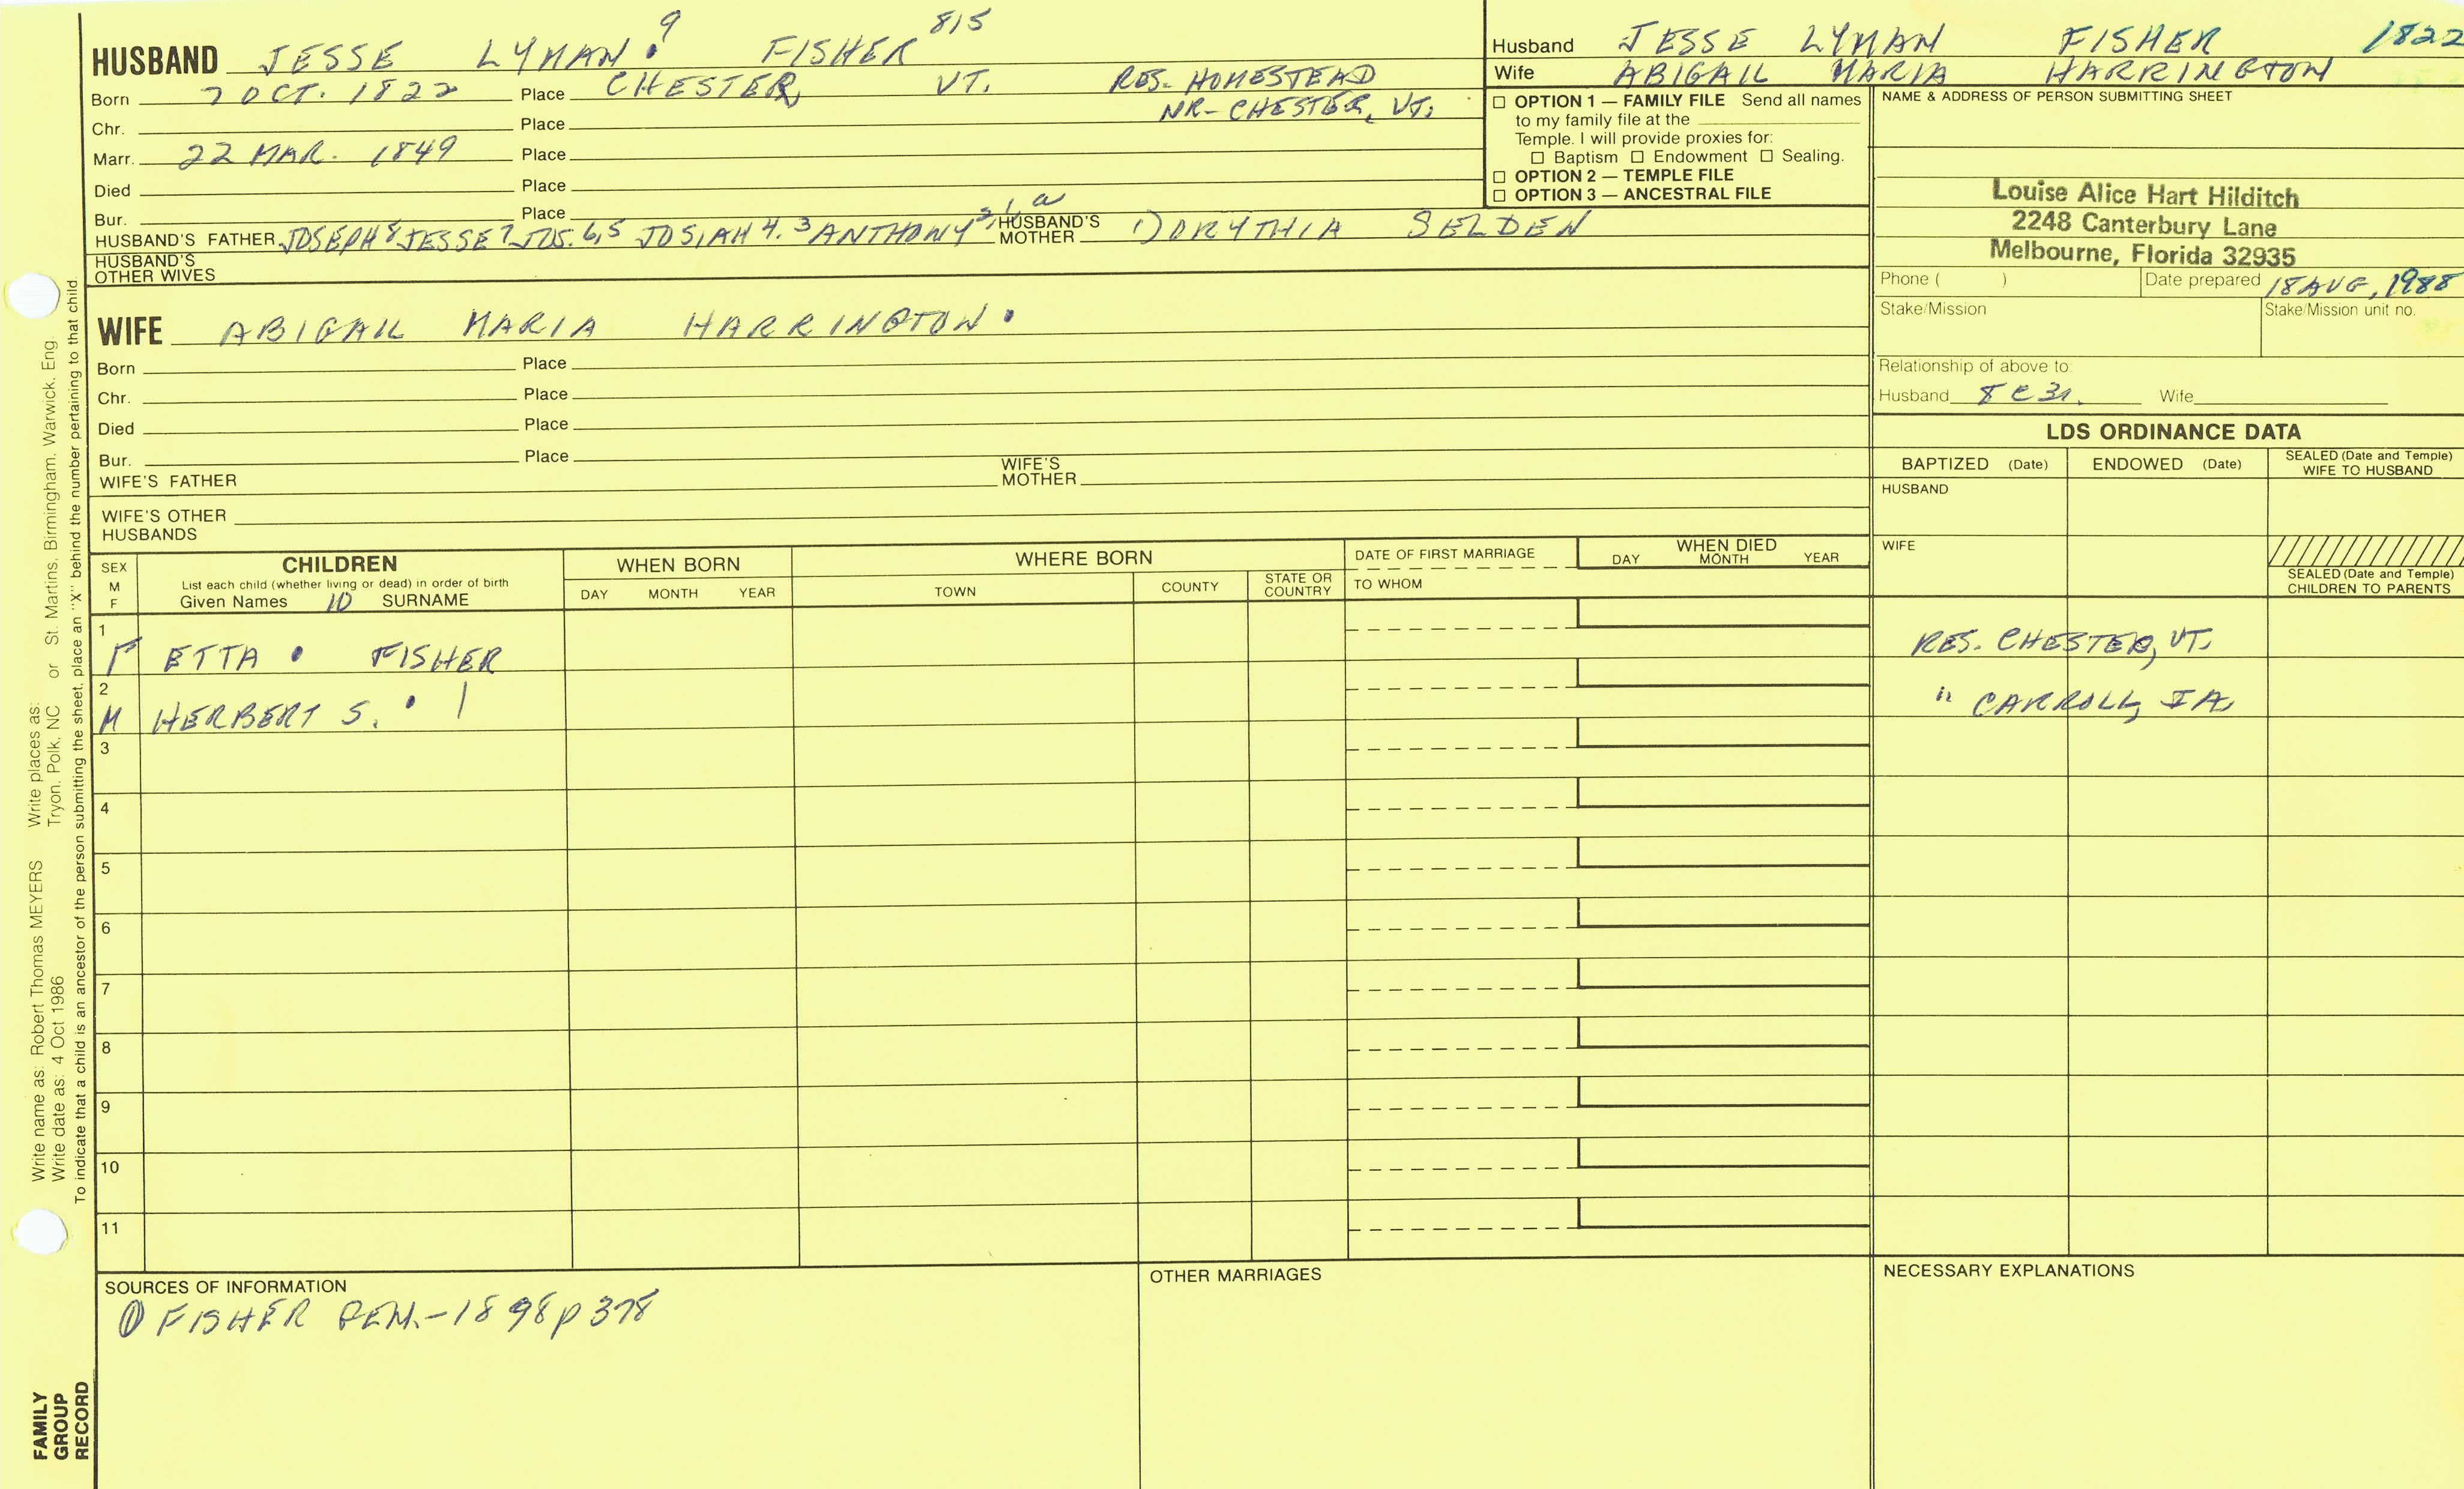 HUSBAND JESSE LYMAN 9 FISHER 815
Born 7 OCT. 1822 Place CHESTER, VT. RES. HOMESTEAD
NR-CHESTER, VT.
Chr. Place
Marr. 22 MAR. 1849 Place
Died Place
Bur. Place
HUSBAND'S FATHER JOSEPH 8 JESSE 7 JOS. 6,5 JOSIAH 4. 3 ANTHONY 2, 1, a HUSBAND'S MOTHER 1) DRYTHIA SELDEN
HUSBAND'S OTHER WIVES
WIFE ABIGAIL MARIA HARRINGTON
Born Place
Chr. Place
Died Place
Bur. Place
WIFE'S FATHER WIFE'S MOTHER
WIFE'S OTHER HUSBANDS
Husband JESSE LYMAN FISHER 1822
Wife ABIGAIL MARIA HARRINGTON
☐ OPTION 1 — FAMILY FILE Send all names
to my family file at the
Temple. I will provide proxies for:
☐ Baptism ☐ Endowment ☐ Sealing.
☐ OPTION 2 — TEMPLE FILE
☐ OPTION 3 — ANCESTRAL FILE
NAME & ADDRESS OF PERSON SUBMITTING SHEET
Louise Alice Hart Hilditch
2248 Canterbury Lane
Melbourne, Florida 32935
Phone ( ) Date prepared 18 AUG, 1988
Stake/Mission Stake/Mission unit no.
Relationship of above to:
Husband 8 C 3r. Wife
LDS ORDINANCE DATA
BAPTIZED (Date) ENDOWED (Date) SEALED (Date and Temple) WIFE TO HUSBAND
HUSBAND
WIFE
SEALED (Date and Temple) CHILDREN TO PARENTS
SEX M F
CHILDREN
List each child (whether living or dead) in order of birth
Given Names 10 SURNAME
WHEN BORN
DAY MONTH YEAR
WHERE BORN
TOWN COUNTY STATE OR COUNTRY
DATE OF FIRST MARRIAGE
TO WHOM
WHEN DIED
DAY MONTH YEAR
1
F ETTA FISHER RES. CHESTER, VT.
2
M HERBERT S. | " CARROLL, IA.
3
4
5
6
7
8
9
10
11
SOURCES OF INFORMATION
① FISHER GEN.-1898 p 378
OTHER MARRIAGES
NECESSARY EXPLANATIONS
Write name as: Robert Thomas MEYERS Write places as:
Write date as: 4 Oct 1986 Tryon, Polk, NC or St. Martins, Birmingham, Warwick, Eng.
To indicate that a child is an ancestor of the person submitting the sheet, place an "X" behind the number pertaining to that child.
FAMILY
GROUP
RECORD